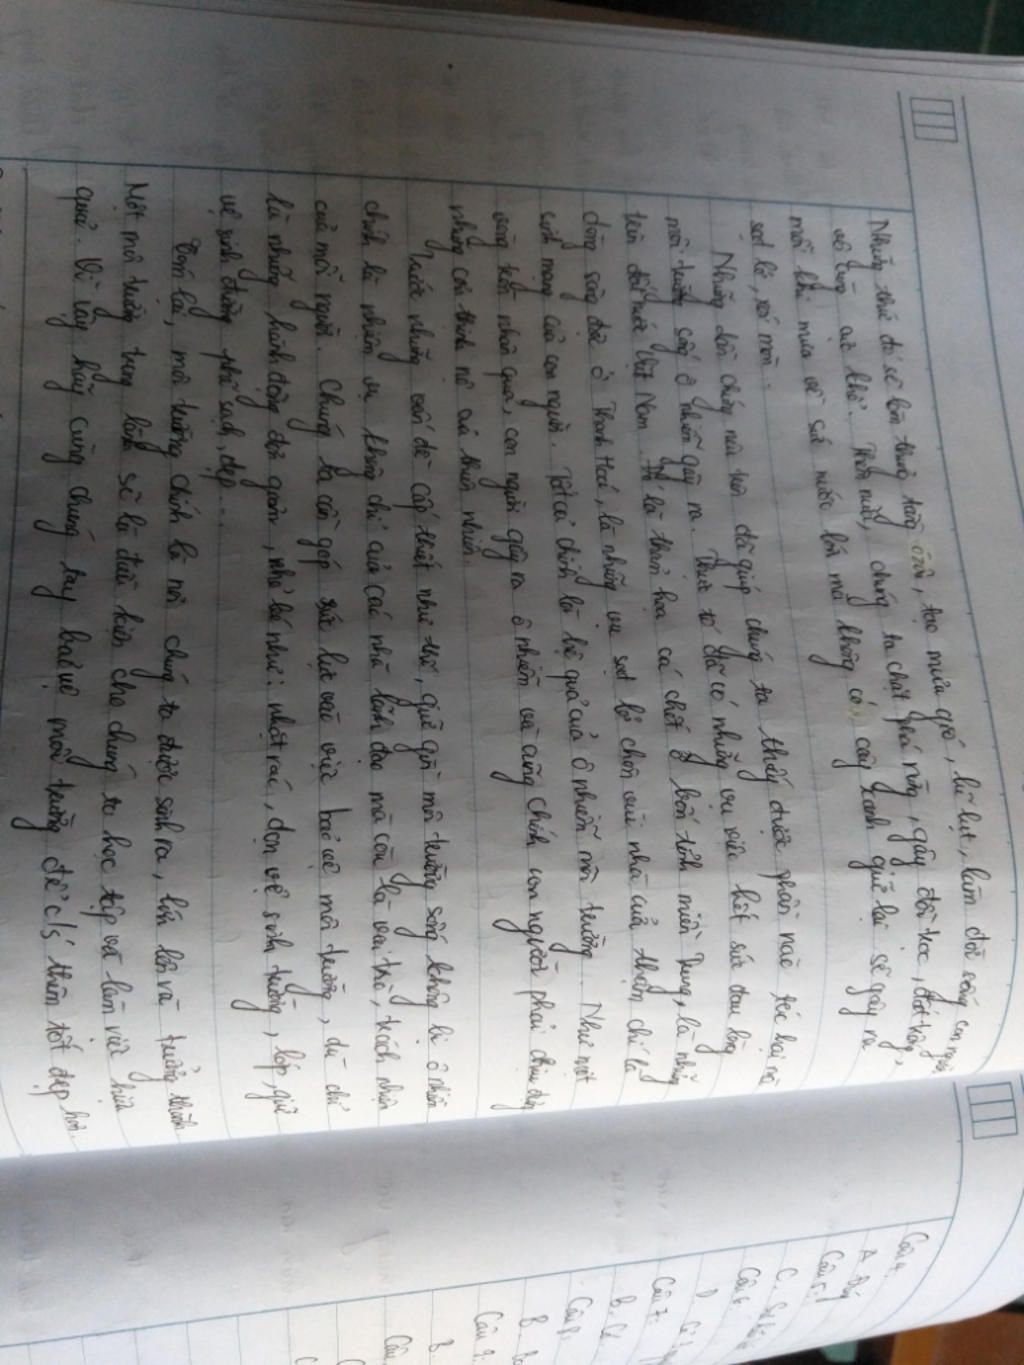 Những thứ đó sẽ làm thủng tầng ôzôn, tạo mưa gió, lũ lụt, làm đời sống con người
vô cùng cực khổ. Thêm nữa, chúng ta chặt phá rừng, gây đồi trọc, đất trống,
mỗi khi mưa về sức nước lớn mà không có cây xanh giữ lại sẽ gây ra
sạt lở, xói mòn.
- Những dẫn chứng nêu trên đã giúp chúng ta thấy được phần nào tác hại mà
môi trường sống ô nhiễm gây ra. Thực tế đã có những vụ việc hết sức đau lòng
trên đất nước Việt Nam. là thảm họa cá chết ở bốn tỉnh miền Trung, là những
dòng sông đục ở Thanh Hoá, là những vụ sạt lở chôn vùi nhà cửa thậm chí là
sinh mạng của con người. Tất cả chính là hệ quả của ô nhiễm môi trường. Như một
vòng tuần nhân quả, con người gây ra ô nhiễm và cũng chính con người phải chịu đựng
những cơn thịnh nộ của thiên nhiên.
Trước những vấn đề cấp thiết như thế, giữ gìn môi trường sống không bị ô nhiễm
chính là nhiệm vụ không chỉ của các nhà lãnh đạo mà còn là vai trò, trách nhiệm
của mỗi người. Chúng ta cần góp sức lực vào việc bảo vệ môi trường, dù chỉ
là những hành động đơn giản, nhỏ bé như: nhặt rác, dọn vệ sinh trường, lớp, giữ
vệ sinh đường phố sạch, đẹp...
Tóm lại, môi trường chính là nơi chúng ta được sinh ra, lớn lên và trưởng thành.
Một môi trường trong lành sẽ là điều kiện cho chúng ta học tập và làm việc hiệu
quả. Vì vậy hãy cùng chung tay bảo vệ môi trường để c/s thêm tốt đẹp hơn.
Câu 4:
A. Đúng
Câu 5:
C.
Câu 6:
D
Câu 7:
B. Có
Câu 8:
B.
Câu 9:
B.
Câu
C